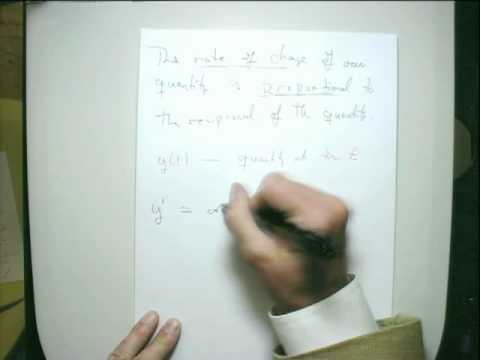 The rate of change of our
quantity is Proportional to
the reciprocal of the quantity.
y(t) — quantity at time t
y' = α